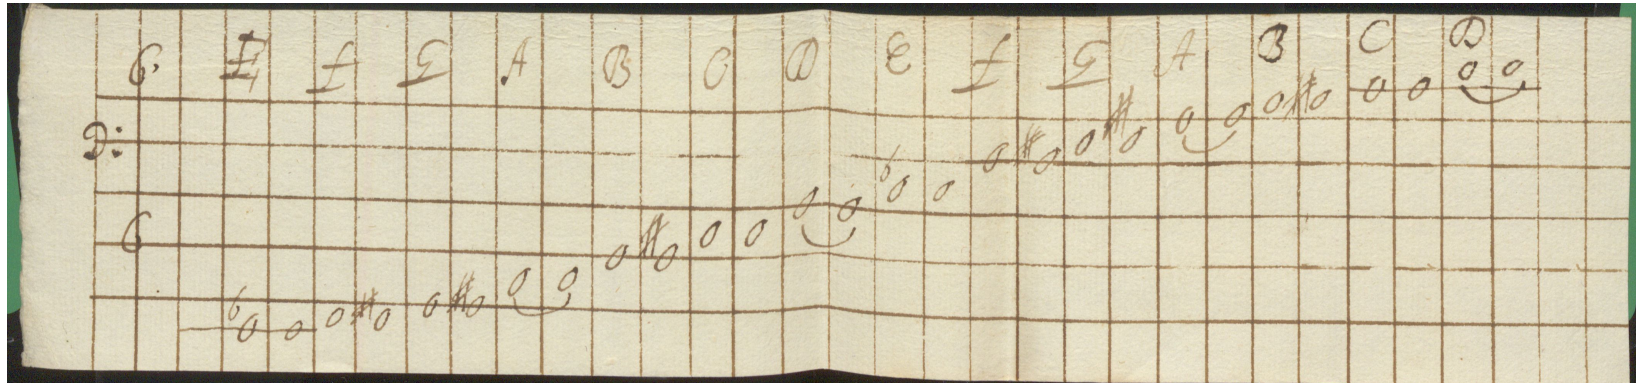 6. E f G A B C D E f G A B C D
D:
6